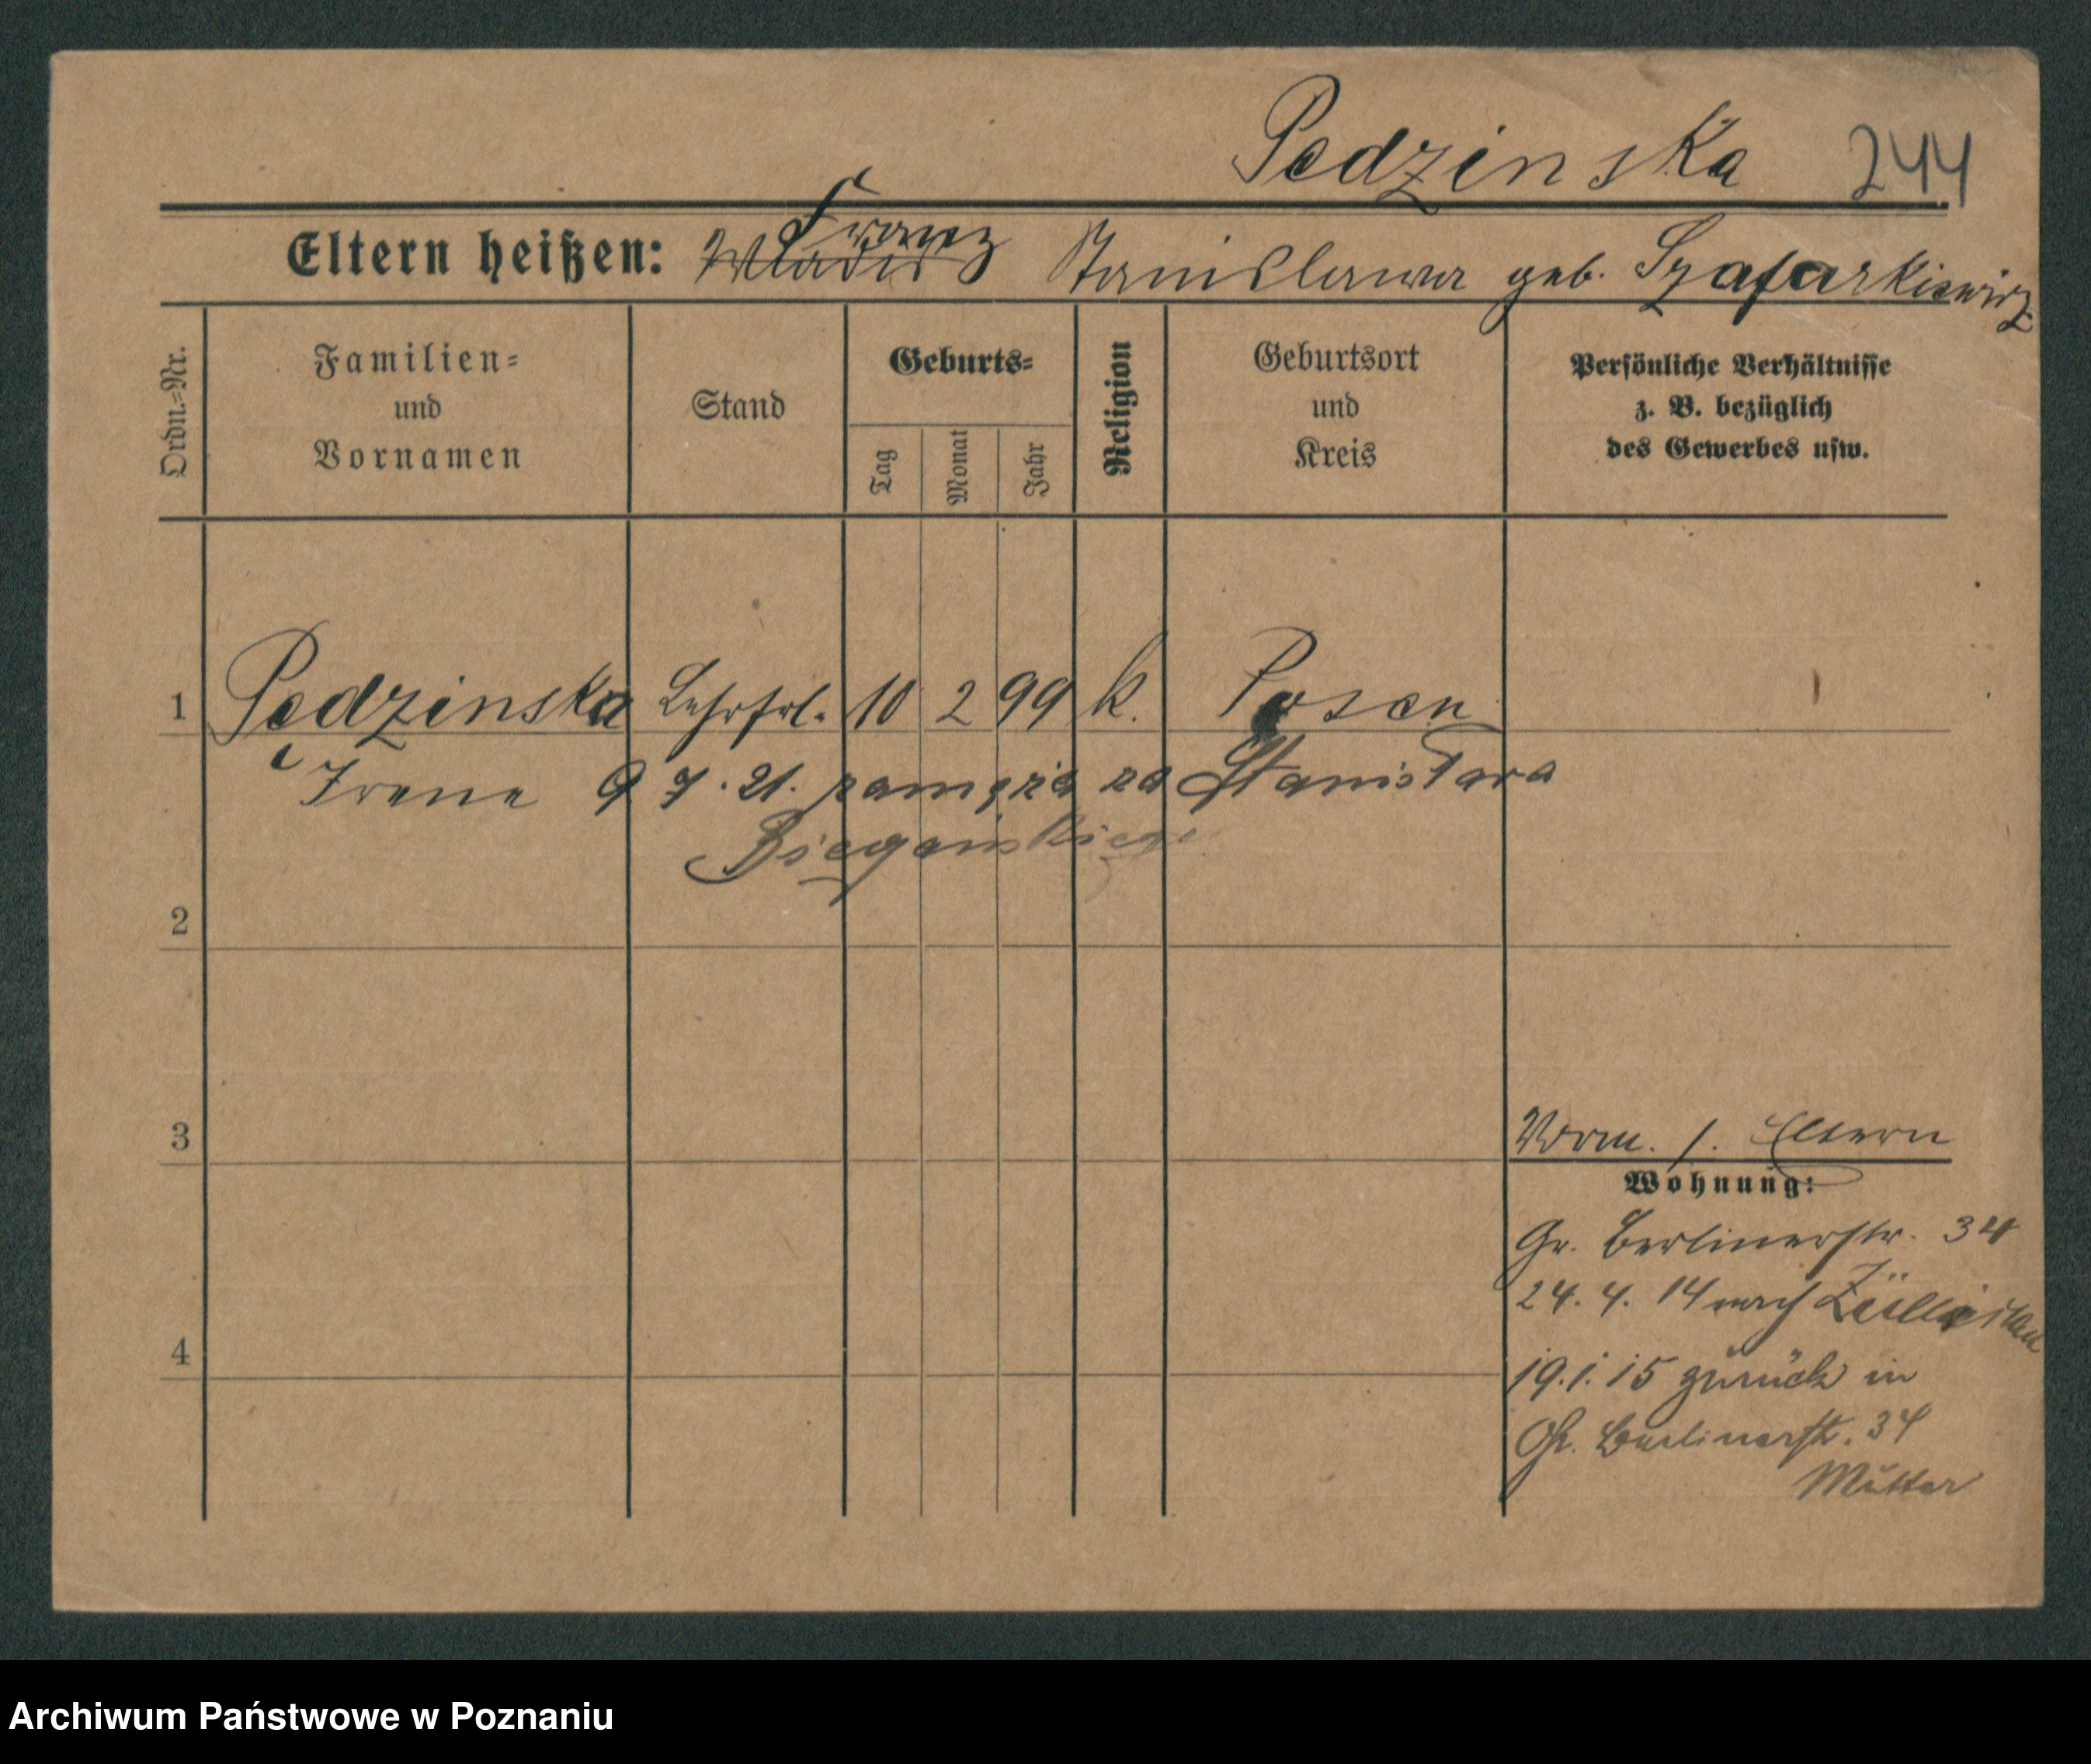 Pedzinska 244
Eltern heißen: Franz Stanislawa geb. Szafarkiewicz
Ordn.=Nr.
Familien=
und
Vornamen
Stand
Geburts=
Tag
Monat
Jahr
Religion
Geburtsort
und
Kreis
Persönliche Verhältnisse
z. B. bezüglich
des Gewerbes usw.
1 Pedzinska Lehrfrl. 10 2 99 k. Posen
Irene 9 7. 21. zamężna za Stanisława
Biegańskiego
2
3
Vorm. s. Eltern
Wohnung:
Gr. Berlinerstr. 34
24. 4. 14 nach
4
19. 1. 15 zurück in
Gr. Berlinerstr. 34
Mutter
Archiwum Państwowe w Poznaniu